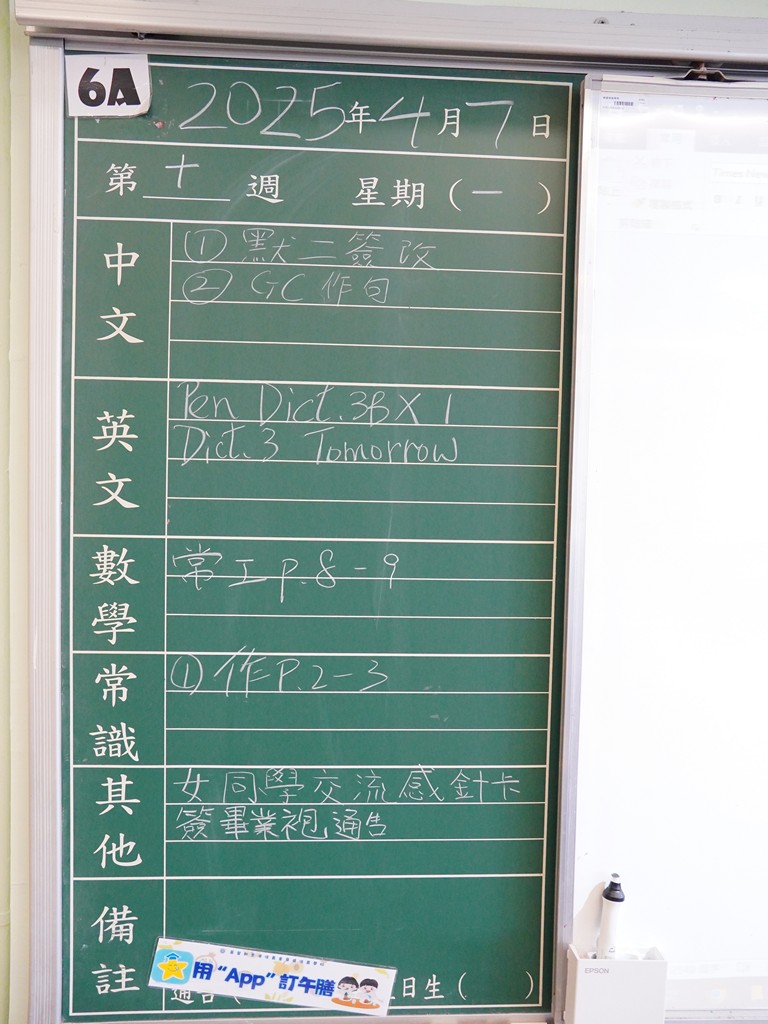 6A
2025年4月7日
第十週 星期(一)
中文
①默二簽改
②GC作句
英文
Pen Dict.3B X 1
Dict.3 Tomorrow
數學
常工P.8-9
常識
①作P.2-3
其他
女同學交流感針卡
簽畢業袍通告
備註
用"App"訂午膳
日生( )
EPSON